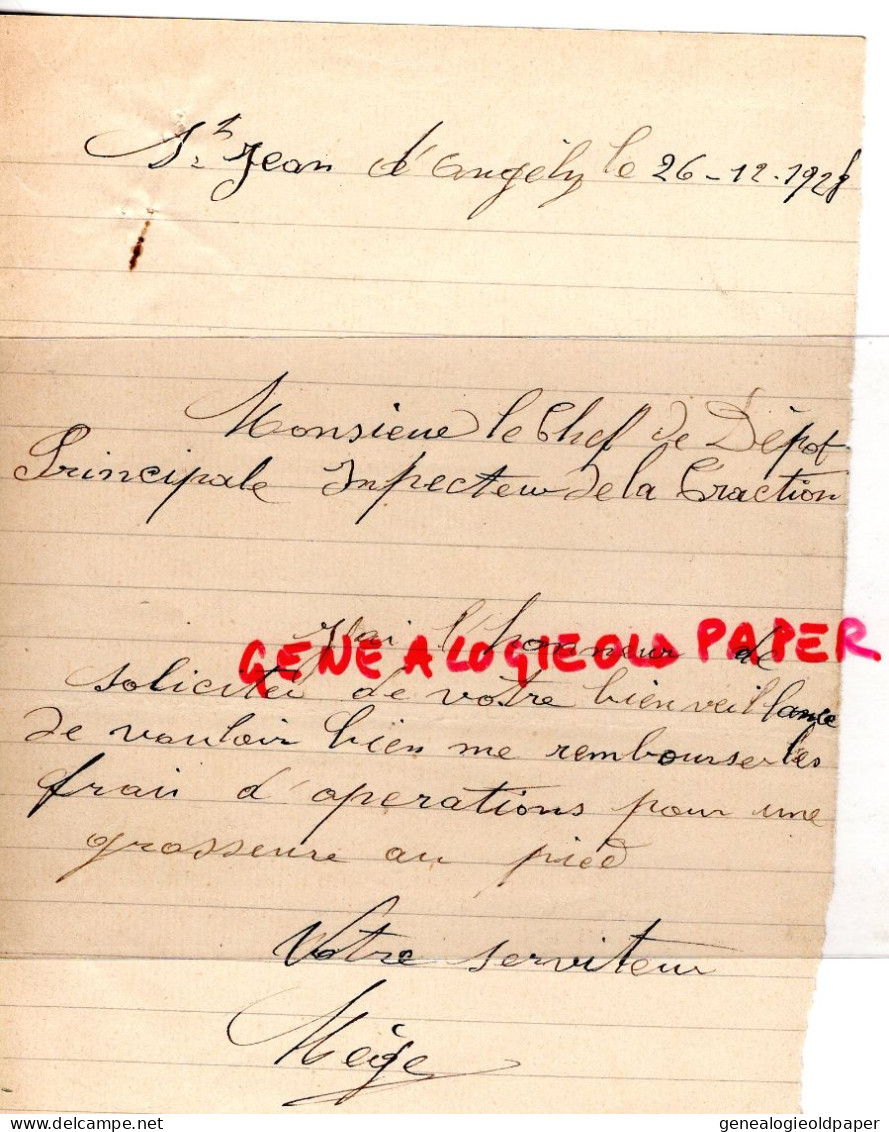 St Jean d'Angély le 26-12-1928
Monsieur le Chef de Dépot
Principale Inpecteur de la Traction
J'ai l'honneur de
GENEALOGIEOLD PAPER
soliciter de votre bienveillance
de vouloir bien me rembourser les
frais d'operations pour une
grosseure au pied
Votre serviteur
Mège
genealogieoldpaper